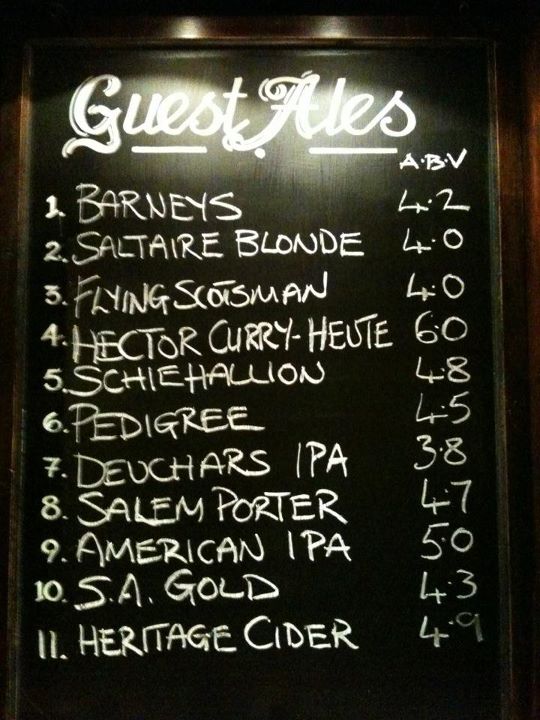 Guest Ales
A.B.V
1. BARNEYS 4.2
2. SALTAIRE BLONDE 4.0
3. FLYING SCOTSMAN 4.0
4. HECTOR CURRY-HEUTE 6.0
5. SCHIEHALLION 4.8
6. PEDIGREE 4.5
7. DEUCHARS IPA 3.8
8. SALEM PORTER 4.7
9. AMERICAN IPA 5.0
10. S.A. GOLD 4.3
11. HERITAGE CIDER 4.9